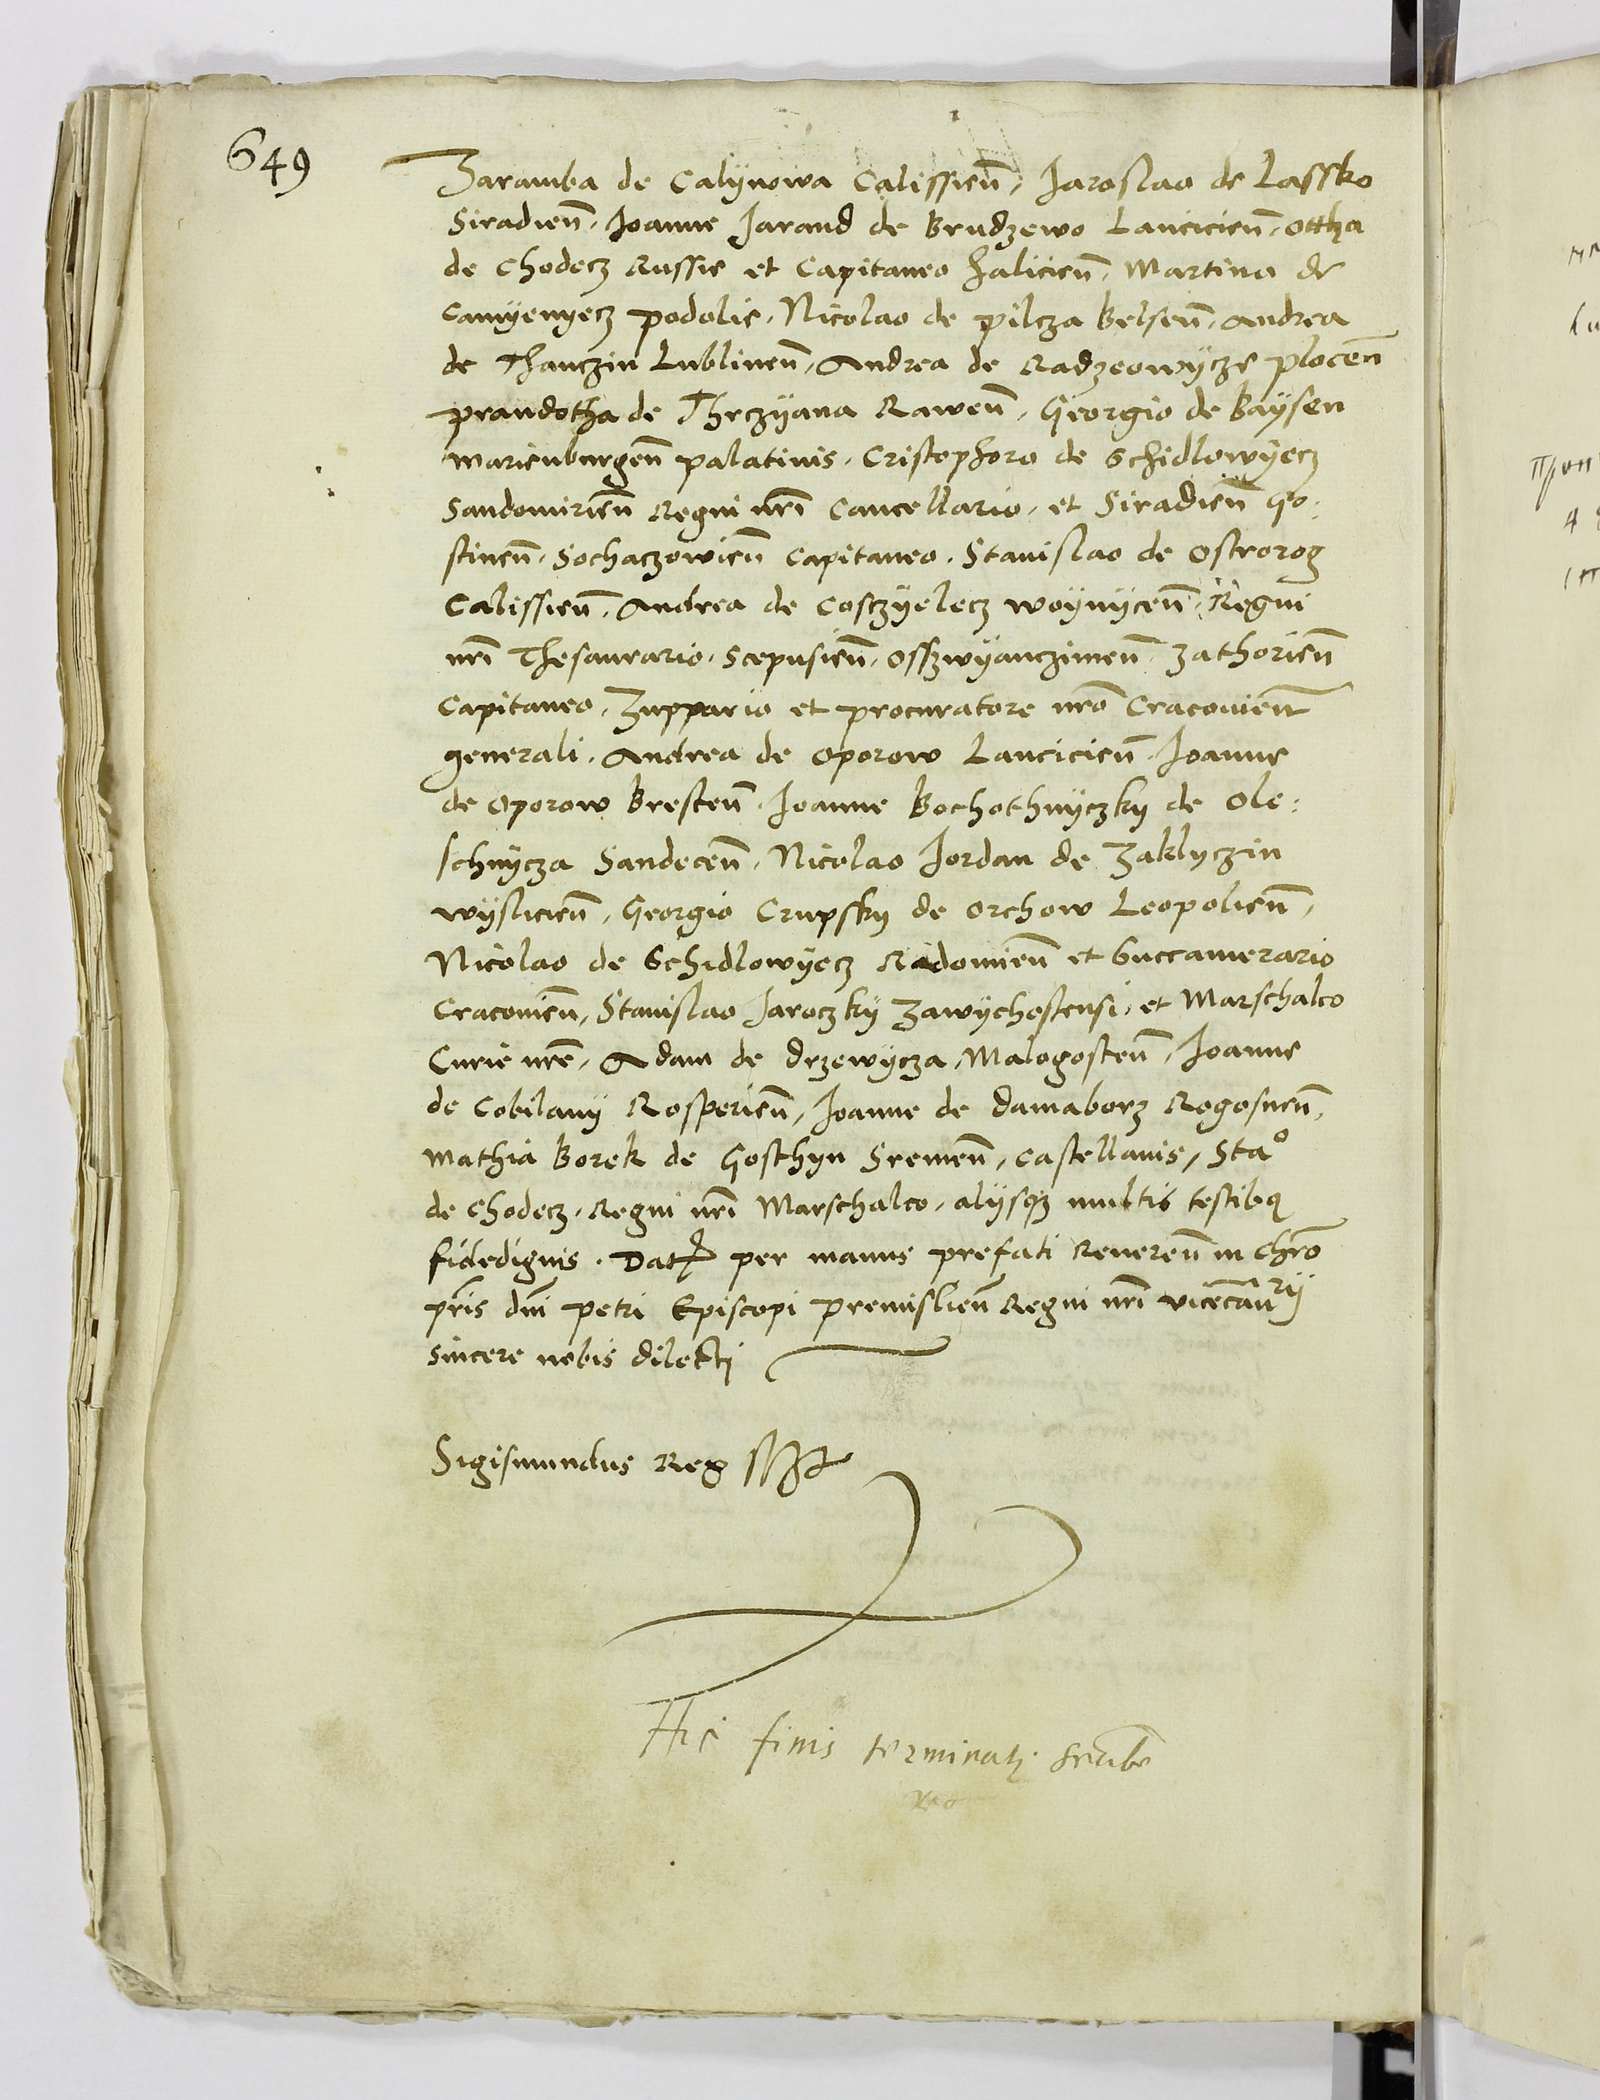 649
Zaramba de Calÿnowa Calissien̄, Jaroslao de Lassko
Siradien̄, Joanne Jarand de Brudzewo Lancicien̄, Ottha
de Chodecz Russie et Capitaneo Halicien̄, Martino de
Camyenyecz podolie, Nicolao de pilcza Belsen̄, Andrea
de Thanczin Lublinen̄, Andrea de Radzeowÿcze plocen̄
prandotha de Threzÿana Rawen̄, Georgio de Baÿsen
Marienburgen̄ palatinis, Cristophoro de Schidlowÿecz
Sandomirien̄ Regni nr̄i Cancellario, et Siradien̄ Go:
stinen̄, Sochaczowien̄ Capitaneo, Stanislao de Ostrorog
Calissien̄, Andrea de Cosczÿelecz woÿnÿcen̄, Regni
nr̄i Thesaurario, Scepusien̄, Osszwÿanczimen̄, Zathorien̄
Capitaneo, Zuppario et procuratore nr̄o Cracovien̄
generali, Andrea de Oporow Lancicien̄, Joanne
de Oporow Bresten̄, Joanne Bochothnÿczky de Ole:
schnÿcza Sandecen̄, Nicolao Jordan de Zaklyczin
wÿslicien̄, Georgio Crupsky de Orchow Leopolien̄,
Nicolao de Schidlowÿecz Radomien̄ et Succamerario
Cracovien̄, Stanislao Jaroczky Zawÿchostensi, et Marschalco
Curie nr̄e, Adam de drzewÿcza, Malogosten̄, Joanne
de Cobilanÿ Rosperien̄, Joanne de damaborz Rogosnen̄,
Mathia Borek de Gosthyn Sremen̄, Castellanis, Sta°
de Chodecz, Regni nr̄i Marschalco, alÿsqз multis testibꝯ
fidedignis. Datꝭ per manus prefati Reveren̄ in Chr̄o
pr̄is dn̄i petri Episcopi premislien̄ Regni nr̄i vicecan̄rÿ
sincere nobis dilecti
Sigismundus Rex sst
Hic finis terminatꝭ